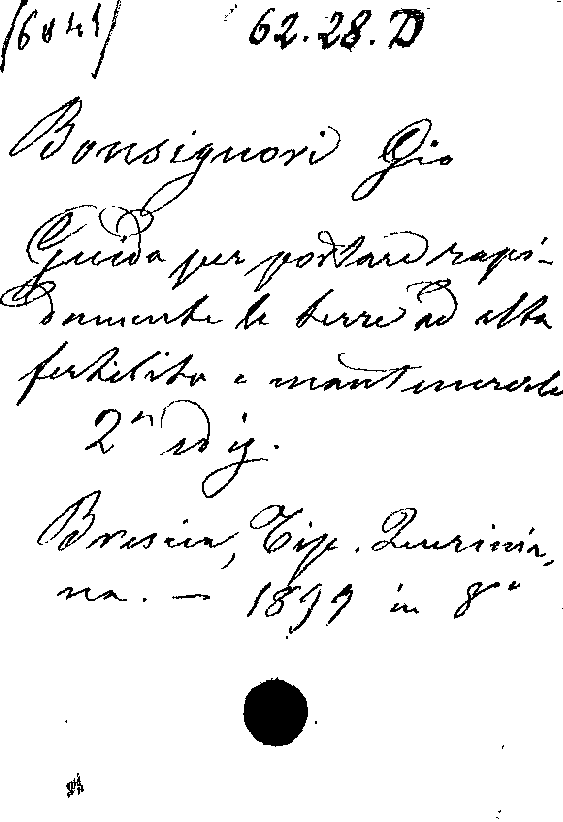 (6841) 62.28.D
Bonsignori Gio
Guida per portare rapi-
damente le terre ad alta
fertilità e mantenercele
2ª ediz.
Brescia, Tip. Queriniã-
na. — 1899 in 8°